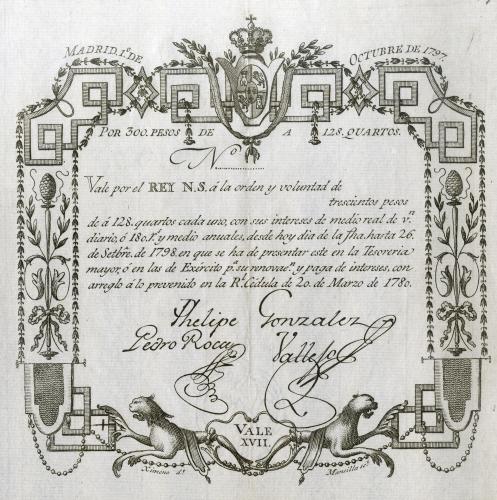 MADRID. 1.º DE OCTUBRE DE 1797.
POR 300. PESOS DE A 128. QUARTOS.
N.º
Vale por el REY N.S. á la orden y voluntad de
trescientos pesos
de á 128. quartos cada uno, con sus intereses de medio real de v.n
diario, ó 180. r.s y medio anuales, desde hoy dia de la fha. hasta 26.
de Setbre. de 1798. en que se ha de presentar este en la Tesoreria
mayor, ó en las de Exército p.a su renovac.n y paga de intereses, con
arreglo á lo prevenido en la R.l Cédula de 20. de Marzo de 1780.
Phelipe Gonzalez
Pedro Roca Vallejo
VALE
XVII.
Ximeno d.º Mansilla